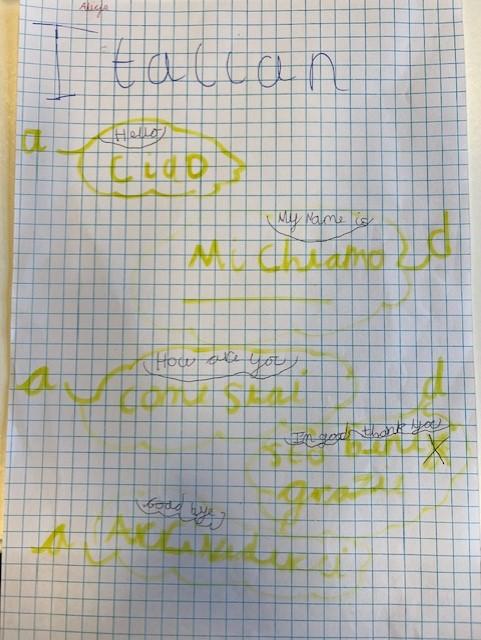 Italian
a
Hello
Ciao
My Name is
Mi Chiamo
d
How are you
a
come stai
d
I'm good thank you
sto bene x
grazie
Good bye
a